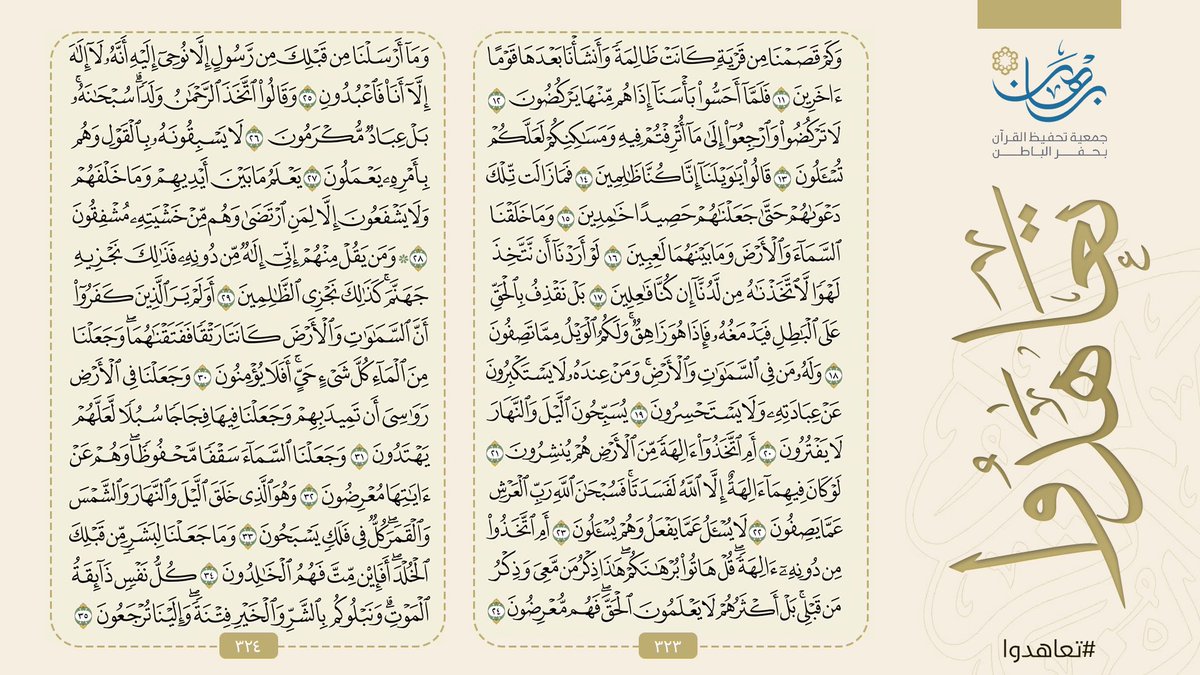 وَكَمْ قَصَمْنَا مِن قَرْيَةٍ كَانَتْ ظَالِمَةً وَأَنشَأْنَا بَعْدَهَا قَوْمًا
ءَاخَرِينَ ١١ فَلَمَّآ أَحَسُّوا۟ بَأْسَنَآ إِذَا هُم مِّنْهَا يَرْكُضُونَ ١٢
لَا تَرْكُضُوا۟ وَٱرْجِعُوٓا۟ إِلَىٰ مَآ أُتْرِفْتُمْ فِيهِ وَمَسَـٰكِنِكُمْ لَعَلَّكُمْ
تُسْـَٔلُونَ ١٣ قَالُوا۟ يَـٰوَيْلَنَآ إِنَّا كُنَّا ظَـٰلِمِينَ ١٤ فَمَا زَالَت تِّلْكَ
دَعْوَىٰهُمْ حَتَّىٰ جَعَلْنَـٰهُمْ حَصِيدًا خَـٰمِدِينَ ١٥ وَمَا خَلَقْنَا
ٱلسَّمَآءَ وَٱلْأَرْضَ وَمَا بَيْنَهُمَا لَـٰعِبِينَ ١٦ لَوْ أَرَدْنَآ أَن نَّتَّخِذَ
لَهْوًا لَّٱتَّخَذْنَـٰهُ مِن لَّدُنَّآ إِن كُنَّا فَـٰعِلِينَ ١٧ بَلْ نَقْذِفُ بِٱلْحَقِّ
عَلَى ٱلْبَـٰطِلِ فَيَدْمَغُهُۥ فَإِذَا هُوَ زَاهِقٌ ۚ وَلَكُمُ ٱلْوَيْلُ مِمَّا تَصِفُونَ
١٨ وَلَهُۥ مَن فِى ٱلسَّمَـٰوَٰتِ وَٱلْأَرْضِ ۚ وَمَنْ عِندَهُۥ لَا يَسْتَكْبِرُونَ
عَنْ عِبَادَتِهِۦ وَلَا يَسْتَحْسِرُونَ ١٩ يُسَبِّحُونَ ٱلَّيْلَ وَٱلنَّهَارَ
لَا يَفْتُرُونَ ٢٠ أَمِ ٱتَّخَذُوٓا۟ ءَالِهَةً مِّنَ ٱلْأَرْضِ هُمْ يُنشِرُونَ ٢١
لَوْ كَانَ فِيهِمَآ ءَالِهَةٌ إِلَّا ٱللَّهُ لَفَسَدَتَا ۚ فَسُبْحَـٰنَ ٱللَّهِ رَبِّ ٱلْعَرْشِ
عَمَّا يَصِفُونَ ٢٢ لَا يُسْـَٔلُ عَمَّا يَفْعَلُ وَهُمْ يُسْـَٔلُونَ ٢٣ أَمِ ٱتَّخَذُوا۟
مِن دُونِهِۦٓ ءَالِهَةً ۖ قُلْ هَاتُوا۟ بُرْهَـٰنَكُمْ ۖ هَـٰذَا ذِكْرُ مَن مَّعِىَ وَذِكْرُ
مَن قَبْلِى ۗ بَلْ أَكْثَرُهُمْ لَا يَعْلَمُونَ ٱلْحَقَّ ۖ فَهُم مُّعْرِضُونَ ٢٤
٣٢٣
وَمَآ أَرْسَلْنَا مِن قَبْلِكَ مِن رَّسُولٍ إِلَّا نُوحِىٓ إِلَيْهِ أَنَّهُۥ لَآ إِلَـٰهَ
إِلَّآ أَنَا۠ فَٱعْبُدُونِ ٢٥ وَقَالُوا۟ ٱتَّخَذَ ٱلرَّحْمَـٰنُ وَلَدًا ۗ سُبْحَـٰنَهُۥ ۚ
بَلْ عِبَادٌ مُّكْرَمُونَ ٢٦ لَا يَسْبِقُونَهُۥ بِٱلْقَوْلِ وَهُم
بِأَمْرِهِۦ يَعْمَلُونَ ٢٧ يَعْلَمُ مَا بَيْنَ أَيْدِيهِمْ وَمَا خَلْفَهُمْ
وَلَا يَشْفَعُونَ إِلَّا لِمَنِ ٱرْتَضَىٰ وَهُم مِّنْ خَشْيَتِهِۦ مُشْفِقُونَ
٢٨ ۞ وَمَن يَقُلْ مِنْهُمْ إِنِّىٓ إِلَـٰهٌ مِّن دُونِهِۦ فَذَٰلِكَ نَجْزِيهِ
جَهَنَّمَ ۚ كَذَٰلِكَ نَجْزِى ٱلظَّـٰلِمِينَ ٢٩ أَوَلَمْ يَرَ ٱلَّذِينَ كَفَرُوٓا۟
أَنَّ ٱلسَّمَـٰوَٰتِ وَٱلْأَرْضَ كَانَتَا رَتْقًا فَفَتَقْنَـٰهُمَا ۖ وَجَعَلْنَا
مِنَ ٱلْمَآءِ كُلَّ شَىْءٍ حَىٍّ ۖ أَفَلَا يُؤْمِنُونَ ٣٠ وَجَعَلْنَا فِى ٱلْأَرْضِ
رَوَٰسِىَ أَن تَمِيدَ بِهِمْ وَجَعَلْنَا فِيهَا فِجَاجًا سُبُلًا لَّعَلَّهُمْ
يَهْتَدُونَ ٣١ وَجَعَلْنَا ٱلسَّمَآءَ سَقْفًا مَّحْفُوظًا ۖ وَهُمْ عَنْ
ءَايَـٰتِهَا مُعْرِضُونَ ٣٢ وَهُوَ ٱلَّذِى خَلَقَ ٱلَّيْلَ وَٱلنَّهَارَ وَٱلشَّمْسَ
وَٱلْقَمَرَ ۖ كُلٌّ فِى فَلَكٍ يَسْبَحُونَ ٣٣ وَمَا جَعَلْنَا لِبَشَرٍ مِّن قَبْلِكَ
ٱلْخُلْدَ ۖ أَفَإِي۟ن مِّتَّ فَهُمُ ٱلْخَـٰلِدُونَ ٣٤ كُلُّ نَفْسٍ ذَآئِقَةُ
ٱلْمَوْتِ ۗ وَنَبْلُوكُم بِٱلشَّرِّ وَٱلْخَيْرِ فِتْنَةً ۖ وَإِلَيْنَا تُرْجَعُونَ ٣٥
٣٢٤
برهان
جمعية تحفيظ القرآن
بحفر الباطن
تعاهدوا
#تعاهدوا